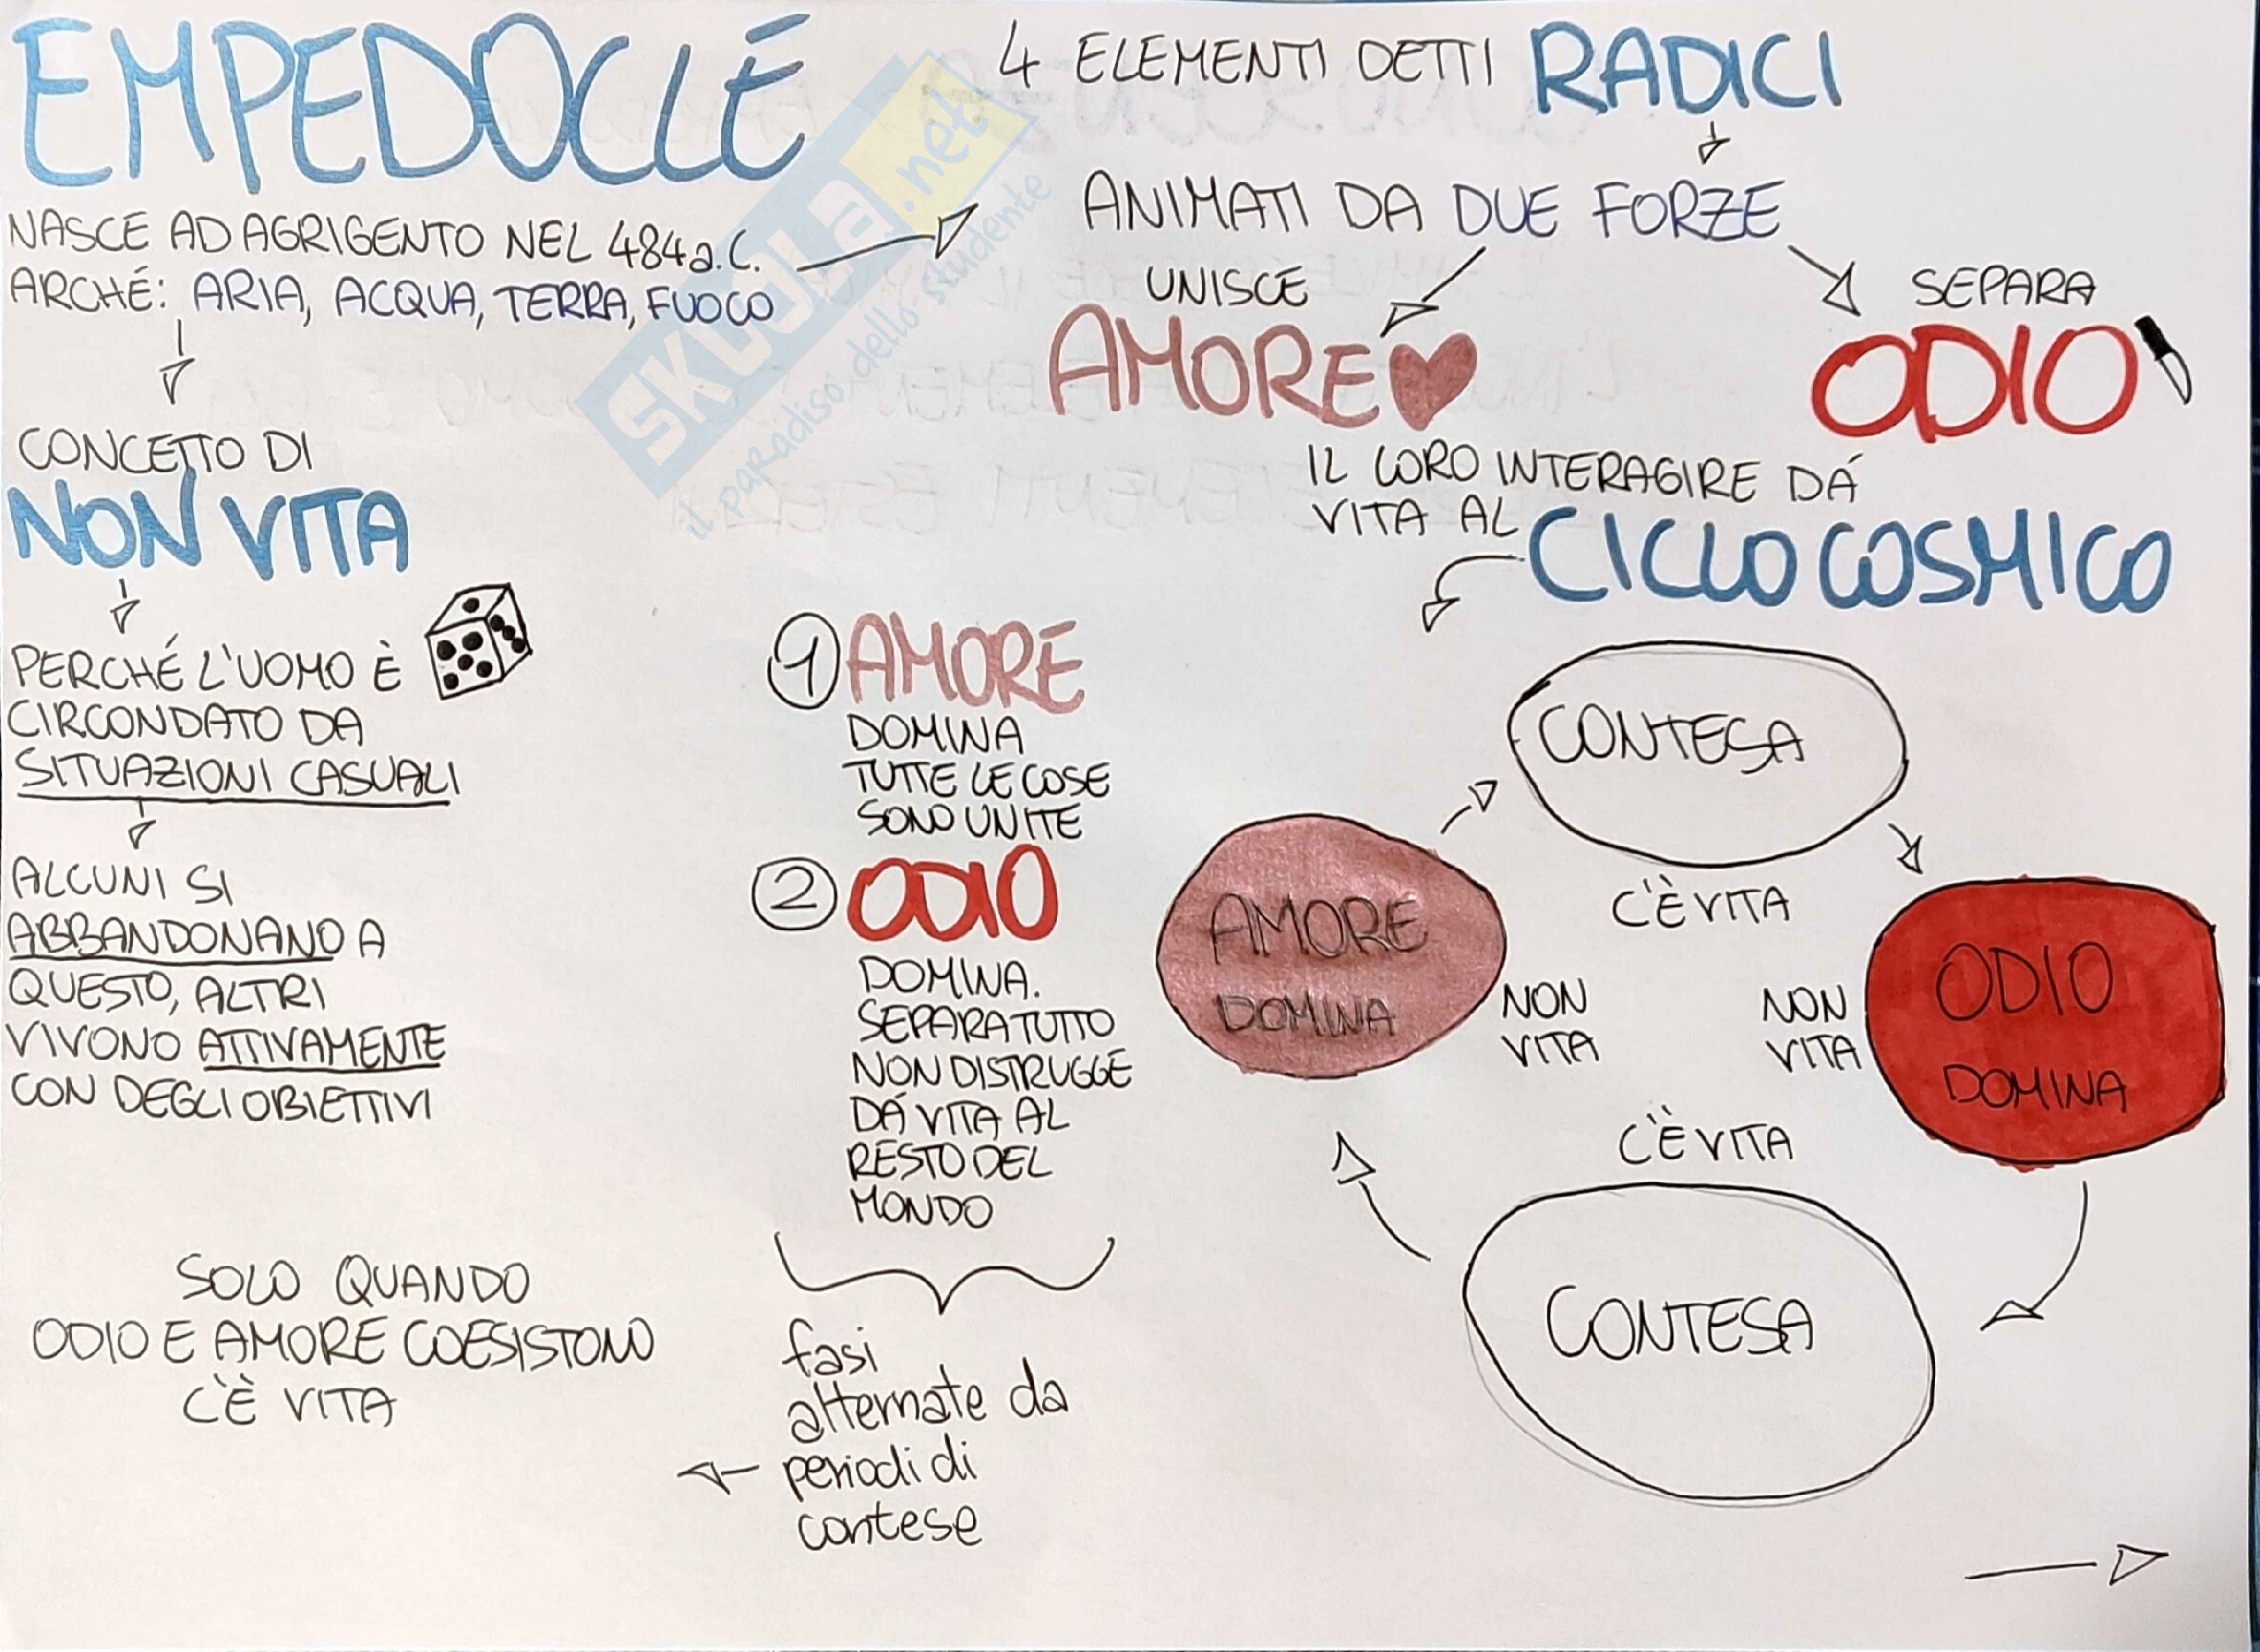 EMPEDOCLE
NASCE AD AGRIGENTO NEL 484 a.C.
ARCHÉ: ARIA, ACQUA, TERRA, FUOCO
CONCETTO DI
NON VITA
PERCHÉ L'UOMO È
CIRCONDATO DA
SITUAZIONI CASUALI
ALCUNI SI
ABBANDONANO A
QUESTO, ALTRI
VIVONO ATTIVAMENTE
CON DEGLI OBIETTIVI
4 ELEMENTI DETTI RADICI
ANIMATI DA DUE FORZE
UNISCE
AMORE
SEPARA
ODIO
IL LORO INTERAGIRE DÁ
VITA AL CICLO COSMICO
1 AMORE
DOMINA
TUTTE LE COSE
SONO UNITE
2 ODIO
DOMINA.
SEPARA TUTTO
NON DISTRUGGE
DÁ VITA AL
RESTO DEL
MONDO
fasi
alternate da
periodi di
contese
SOLO QUANDO
ODIO E AMORE COESISTONO
C'È VITA
CONTESA
C'È VITA
AMORE
DOMINA
NON
VITA
NON
VITA
ODIO
DOMINA
C'È VITA
CONTESA
SKUOLA.net
il paradiso dello studente